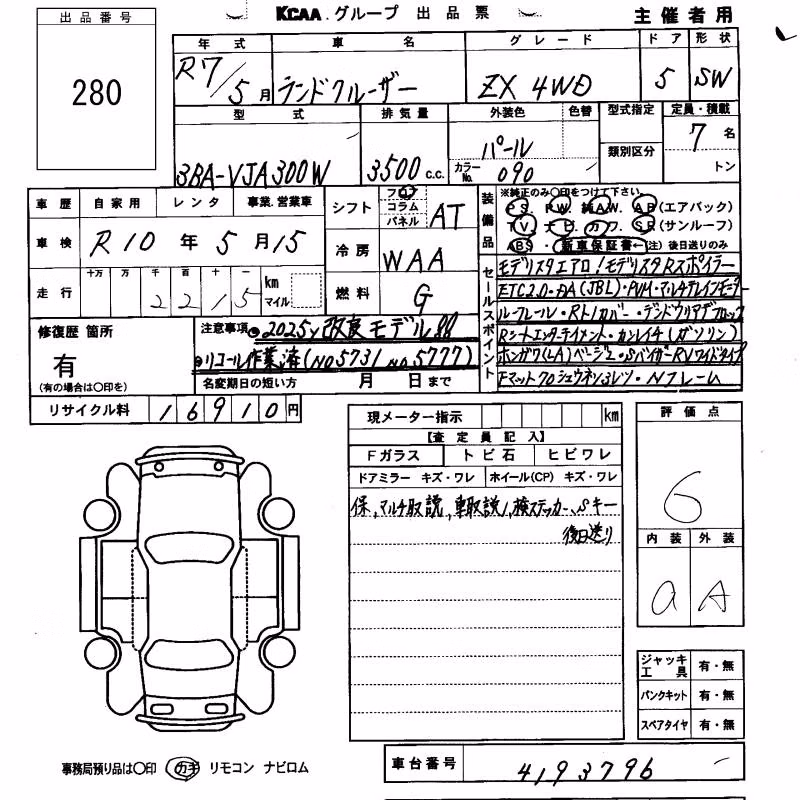 出品番号
280
KCAA.グループ 出品票
主催者用
年式 車名 グレード ドア 形状
R7/5月 ランドクルーザー ZX 4WD 5 SW
型式 排気量 外装色 色替 型式指定 定員・積載
3BA-VJA300W 3500c.c. パール 7名
カラーNo. 090 類別区分 トン
車歴 自家用 レンタ 事業.営業車
車検 R10年5月15
走行 十万 万 千 百 十 一
2215 km マイル
シフト フロア コラム パネル AT
冷房 WAA
燃料 G
装備品
※純正のみ〇印をつけて下さい
PS. PW. 純AW. AB(エアバック)
TV. ナビ. カワ. SR(サンルーフ)
ABS・新車保証書←(注) 後日送りのみ
セールスポイント
モデリスタエアロ!モデリスタRスポイラー
ETC2.0・DA(JBL)・PVM・マルチテレインモニター
ルーフレール・Rトノカバー・
Rシートエンターテイメント・カンレイチ(ガソリン)
ホンガワ(LA)ベージュ・SバイザーRVワイドタイプ
Fマット70シュウネン3レツ・Nフレーム
修復歴 箇所
有
(有の場合は〇印を)
注意事項 2025y改良モデル
リコール作業済(NO5731 NO5777)
名変期日の短い方 月 日まで
リサイクル料 16910円
現メーター指示 km
【査定員記入】
Fガラス トビ石 ヒビワレ
ドアミラー キズ・ワレ ホイール(CP) キズ・ワレ
保、マルチ取説、車取説、検ステッカー、Sキー
後日送り
評価点
6
内装 外装
a A
ジャッキ工具 有・無
パンクキット 有・無
スペアタイヤ 有・無
事務局預り品は〇印 カギ リモコン ナビロム
車台番号 4193796